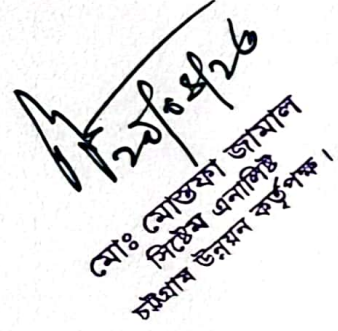 মোঃ মোস্তফা জামাল
সিষ্টেম এনালিষ্ট
চট্টগ্রাম উন্নয়ন কর্তৃপক্ষ।